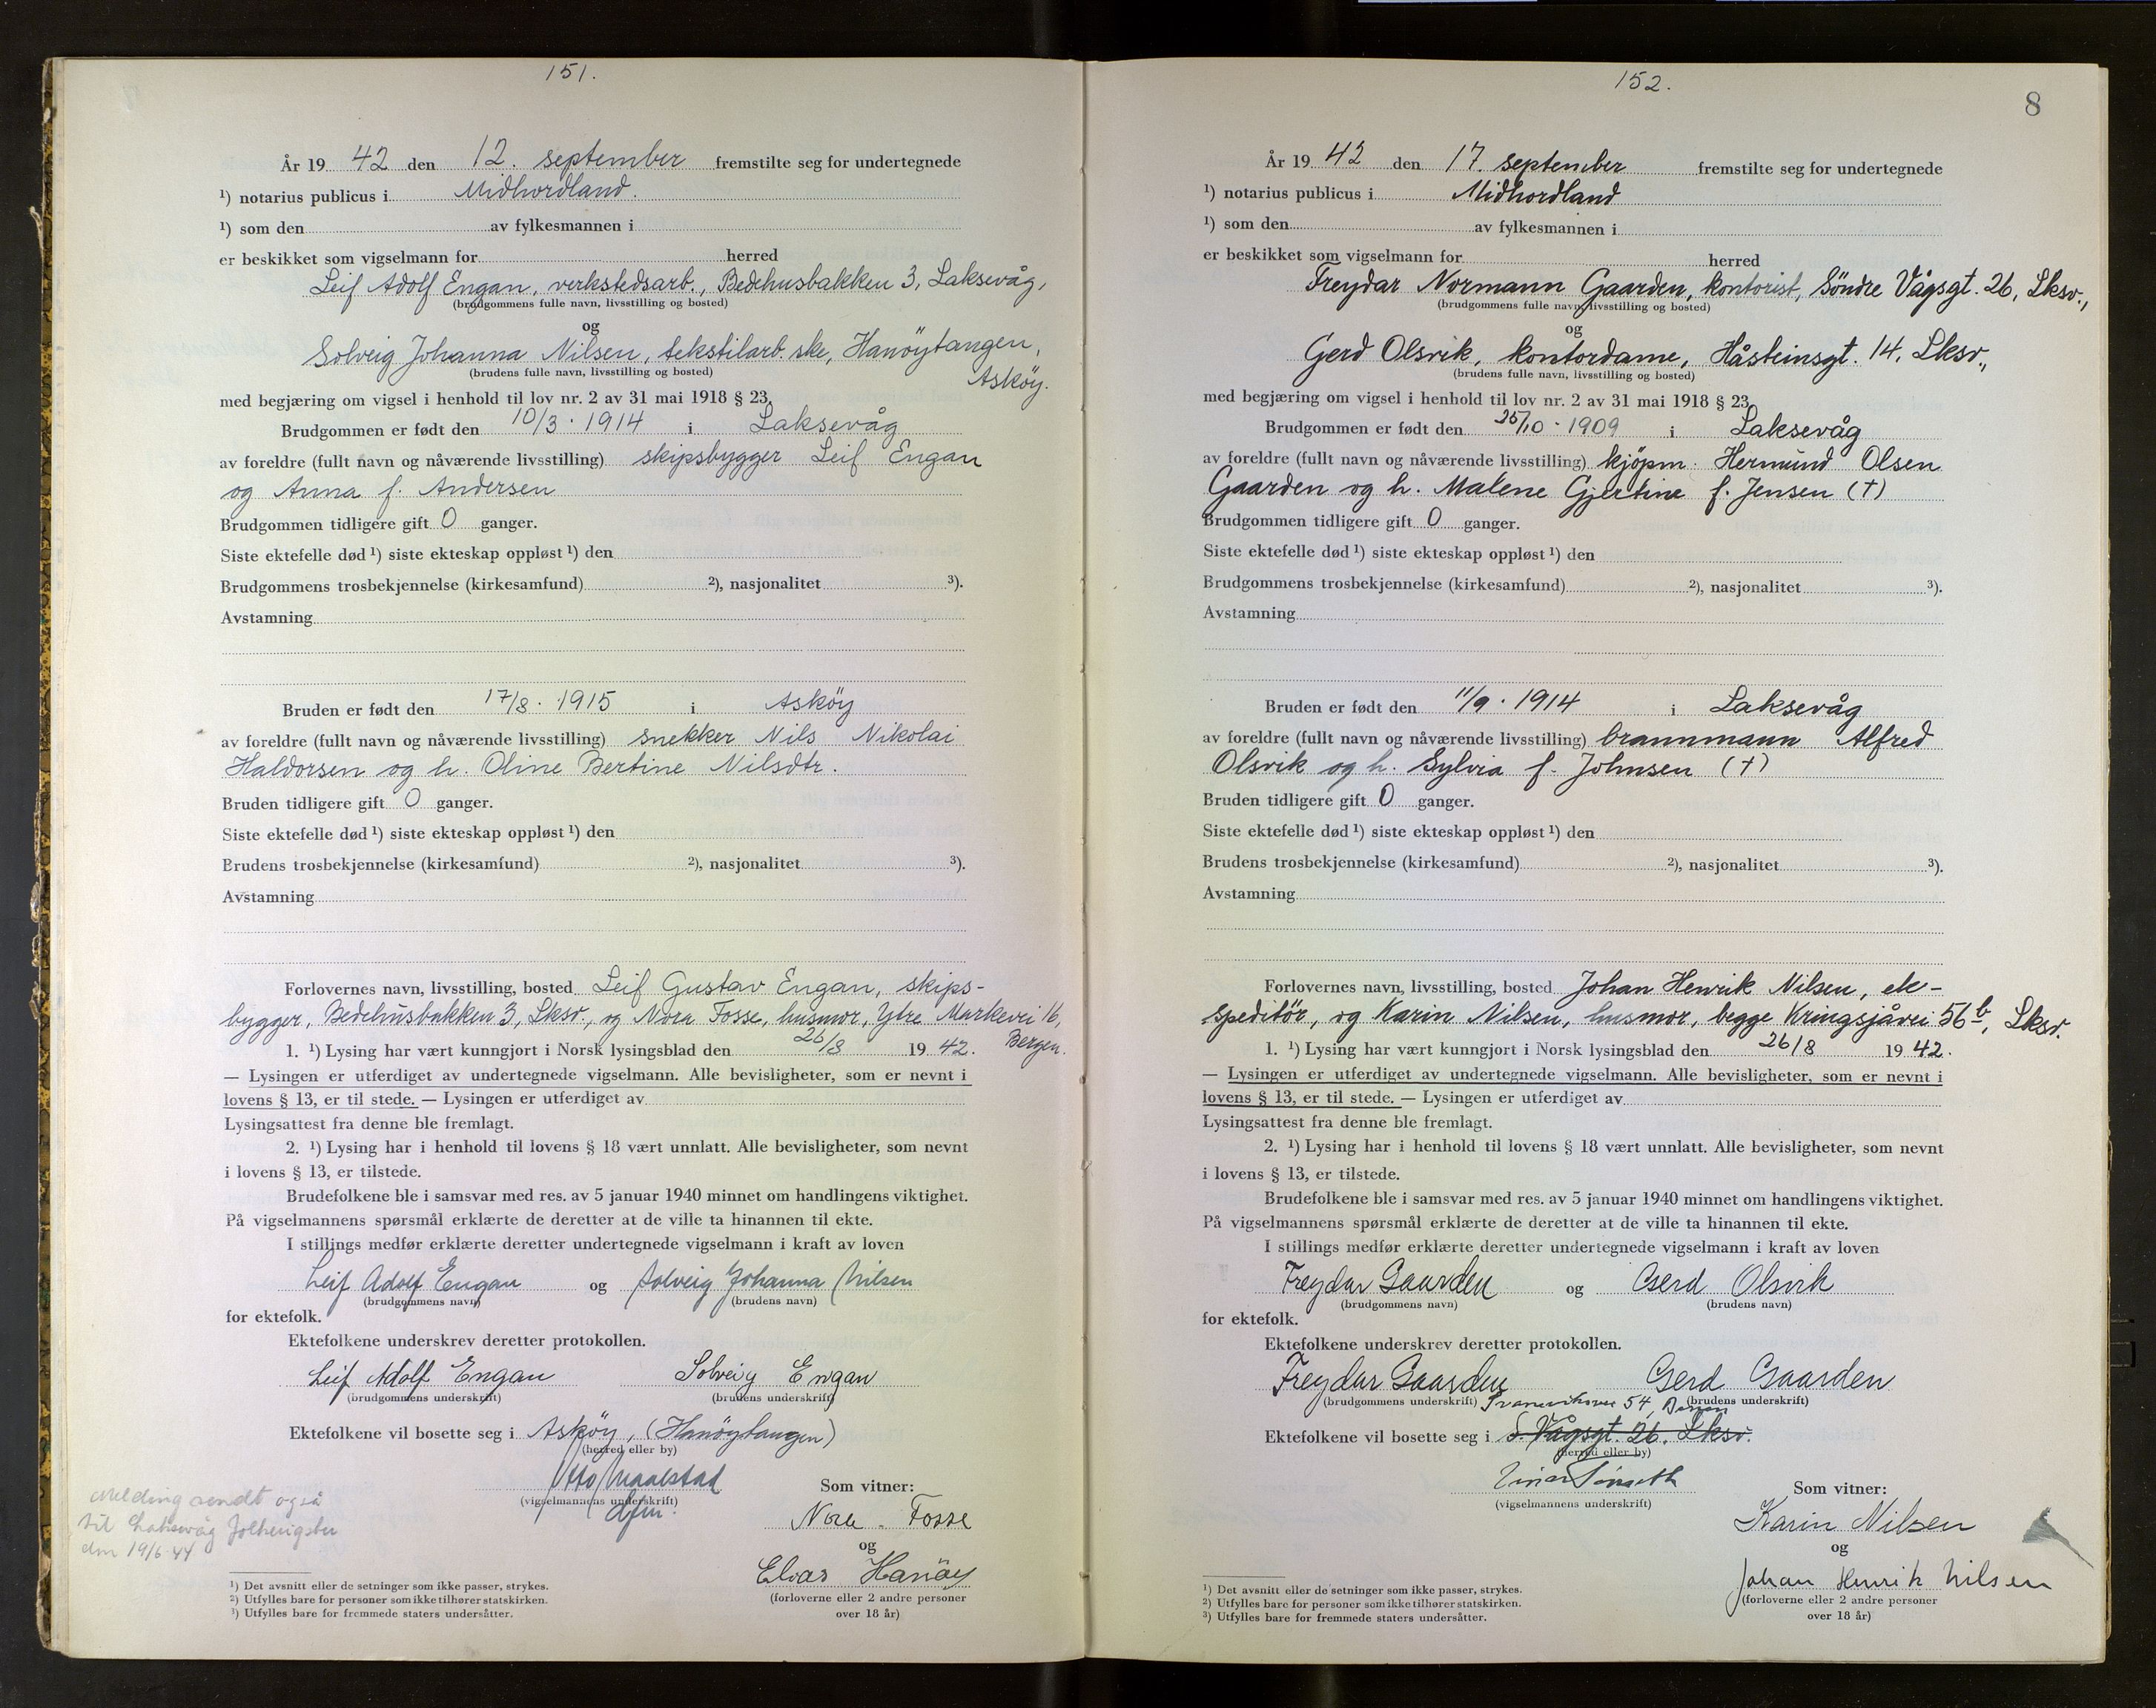 151.
År 19 42 den 12. september fremstilte seg for undertegnede
¹) notarius publicus i Midhordland.
¹) som den av fylkesmannen i
er beskikket som vigselmann for herred
Leif Adolf Engan, verkstedsarb., Bedehusbakken 3, Laksevåg,
(brudgommens fulle navn, livsstilling og bosted)
og
Solveig Johanna Nilsen, tekstilarb.ske, Hanöytangen,
(brudens fulle navn, livsstilling og bosted) Asköy.
med begjæring om vigsel i henhold til lov nr. 2 av 31 mai 1918 § 23.
Brudgommen er født den 10/3 · 1914 i Laksevåg
av foreldre (fullt navn og nåværende livsstilling) skipsbygger Leif Engan
og Anna f. Andersen
Brudgommen tidligere gift 0 ganger.
Siste ektefelle død ¹) siste ekteskap oppløst ¹) den
Brudgommens trosbekjennelse (kirkesamfund) ²), nasjonalitet ³).
Avstamning
Bruden er født den 17/8 · 1915 i Asköy
av foreldre (fullt navn og nåværende livsstilling) snekker Nils Nikolai
Haldorsen og h. Oline Bertine Nilsdtr.
Bruden tidligere gift 0 ganger.
Siste ektefelle død ¹) siste ekteskap oppløst ¹) den
Brudens trosbekjennelse (kirkesamfund) ²), nasjonalitet ³).
Avstamning
Forlovernes navn, livsstilling, bosted Leif Gustav Engan, skips-
bygger, Bedehusbakken 3, Lksv., og Nora Fosse, husmor, Ytre Markevei 16,
Bergen.
1. ¹) Lysing har vært kunngjort i Norsk lysingsblad den 26/8 19 42.
— Lysingen er utferdiget av undertegnede vigselmann. Alle bevisligheter, som er nevnt i
lovens § 13, er til stede. — Lysingen er utferdiget av
Lysingsattest fra denne ble fremlagt.
2. ¹) Lysing har i henhold til lovens § 18 vært unnlatt. Alle bevisligheter, som nevnt
i lovens § 13, er tilstede.
Brudefolkene ble i samsvar med res. av 5 januar 1940 minnet om handlingens viktighet.
På vigselmannens spørsmål erklærte de deretter at de ville ta hinannen til ekte.
I stillings medfør erklærte deretter undertegnede vigselmann i kraft av loven
Leif Adolf Engan og Solveig Johanna Nilsen
(brudgommens navn) (brudens navn)
for ektefolk.
Ektefolkene underskrev deretter protokollen.
Leif Adolf Engan Solveig Engan
(brudgommens underskrift) (brudens underskrift)
Ektefolkene vil bosette seg i Asköy, (Hanöytangen)
(herred eller by)
(vigselmannens underskrift)
Som vitner:
Nora Fosse
og
Elvas Hanöy
(forloverne eller 2 andre personer
over 18 år)
Melding sendt også
til Laksevåg
den 19/6 44
¹) Det avsnitt eller de setninger som ikke passer, strykes.
²) Utfylles bare for personer som ikke tilhører statskirken.
³) Utfylles bare for fremmede staters undersåtter.
152.
8
År 19 42 den 17. september fremstilte seg for undertegnede
¹) notarius publicus i Midhordland
¹) som den av fylkesmannen i
er beskikket som vigselmann for herred
Freydar Normann Gaarden, kontorist, Söndre Vågsgt. 26, Lksv.,
(brudgommens fulle navn, livsstilling og bosted)
og
Gerd Olsvik, kontordame, Håsteinsgt. 14, Lksv.,
(brudens fulle navn, livsstilling og bosted)
med begjæring om vigsel i henhold til lov nr. 2 av 31 mai 1918 § 23.
Brudgommen er født den 25/10 · 1909 i Laksevåg
av foreldre (fullt navn og nåværende livsstilling) kjöpm. Hermund Olsen
Gaarden og h. Malene Gjertine f. Jensen (†)
Brudgommen tidligere gift 0 ganger.
Siste ektefelle død ¹) siste ekteskap oppløst ¹) den
Brudgommens trosbekjennelse (kirkesamfund) ²), nasjonalitet ³).
Avstamning
Bruden er født den 11/9 · 1914 i Laksevåg
av foreldre (fullt navn og nåværende livsstilling) brannmann Alfred
Olsvik og h. Sylvia f. Johnsen (†)
Bruden tidligere gift 0 ganger.
Siste ektefelle død ¹) siste ekteskap oppløst ¹) den
Brudens trosbekjennelse (kirkesamfund) ²), nasjonalitet ³).
Avstamning
Forlovernes navn, livsstilling, bosted Johan Henrik Nilsen, ek-
speditör, og Karin Nilsen, husmor, begge Kringsjåvei 56 b, Lksv.
1. ¹) Lysing har vært kunngjort i Norsk lysingsblad den 26/8 19 42.
— Lysingen er utferdiget av undertegnede vigselmann. Alle bevisligheter, som er nevnt i
lovens § 13, er til stede. — Lysingen er utferdiget av
Lysingsattest fra denne ble fremlagt.
2. ¹) Lysing har i henhold til lovens § 18 vært unnlatt. Alle bevisligheter, som nevnt
i lovens § 13, er tilstede.
Brudefolkene ble i samsvar med res. av 5 januar 1940 minnet om handlingens viktighet.
På vigselmannens spørsmål erklærte de deretter at de ville ta hinannen til ekte.
I stillings medfør erklærte deretter undertegnede vigselmann i kraft av loven
Freydar Gaarden og Gerd Olsvik
(brudgommens navn) (brudens navn)
for ektefolk.
Ektefolkene underskrev deretter protokollen.
Freydar Gaarden Gerd Gaarden
(brudgommens underskrift) (brudens underskrift)
54,
Ektefolkene vil bosette seg i S. Vågsgt. 26, Lksv.
(herred eller by)
(vigselmannens underskrift)
Som vitner:
Karin Nilsen
og
Johan Henrik Nilsen
(forloverne eller 2 andre personer
over 18 år)
¹) Det avsnitt eller de setninger som ikke passer, strykes.
²) Utfylles bare for personer som ikke tilhører statskirken.
³) Utfylles bare for fremmede staters undersåtter.